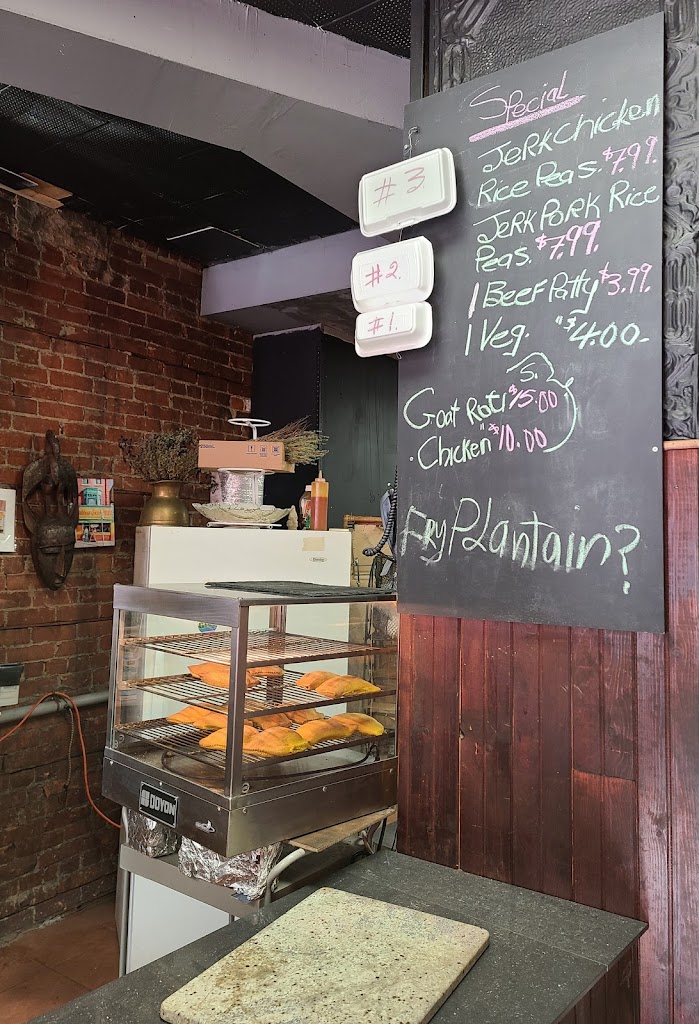 Special
JERK Chicken
Rice Peas. $7.99.
JERK PORK Rice
Peas. $7.99.
1 Beef Patty $3.99.
1 Veg. "$4.00-
Goat Roti $15.00
Chicken " $10.00
Fry Plantain?
# 3.
#2.
#1.
DOYON